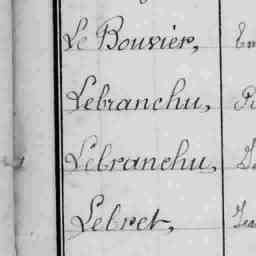 Le Bouvier,
Lebranchu,
Lebranchu,
Lebret,